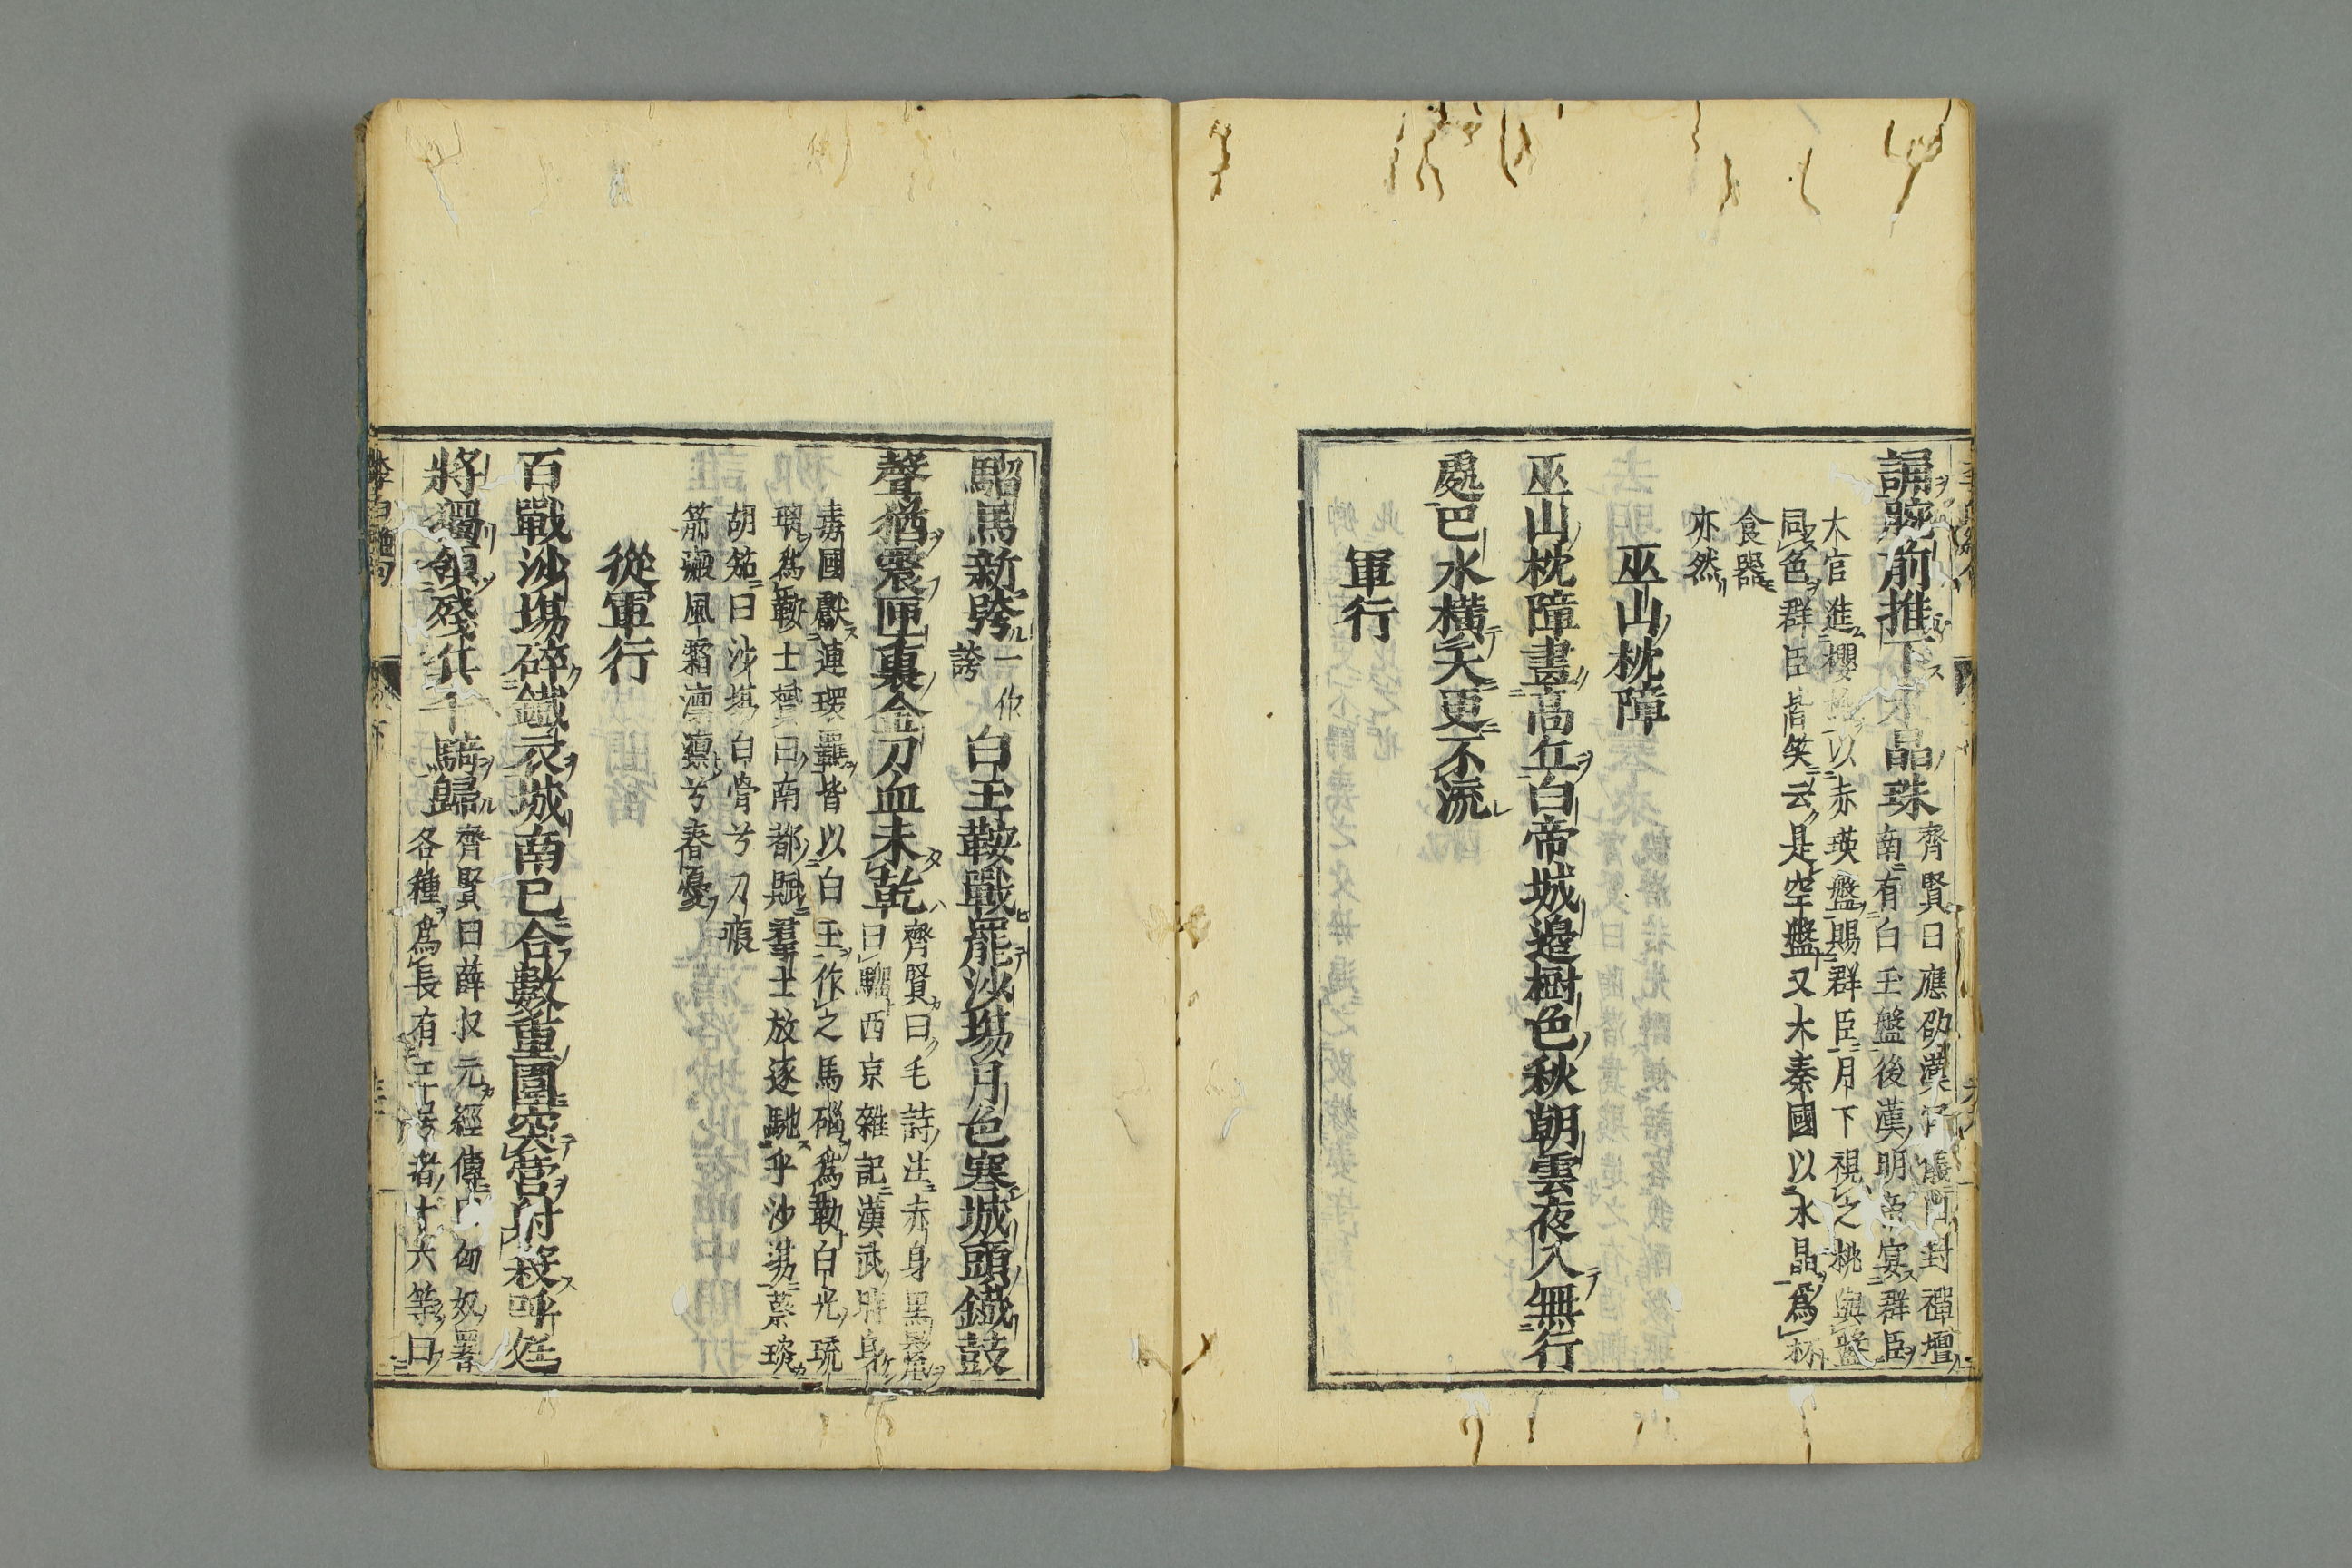 誦腕前推下水晶珠
齊賢曰應劭漢官儀封禪壇
南有白玉盤後漢明帝宴群臣
大官進櫻桃以赤瑛盤賜群臣月下視之桃與盤
同色群臣皆笑云是空盤又大秦國以水晶爲杯
食器
亦然
巫山枕障
巫山枕障畫高丘白帝城邊樹色秋朝雲夜入無行
處巴水橫天更不流
軍行
騮馬新跨一作誇白玉鞍戰罷沙場月色寒城頭鐵鼓
聲猶震匣裏金刀血未乾
齊賢曰毛詩注赤身黑鬛
曰騮西京雜記漢武時身
毒國獻連環羈皆以白玉作之馬碯爲勒白光琉
璃爲鞍士贇曰南都賦羣士放逐馳乎沙場蔡琰
胡笳曰沙塲白骨兮刀痕
箭瘢風霜凜凜兮春憂
從軍行
百戰沙場碎鐵衣城南已合數重圍突營射殺呼延
將獨領殘兵千騎歸
齊賢曰薛収元經傳曰匈奴署
各種爲長有二十者十六等曰
李白絶句